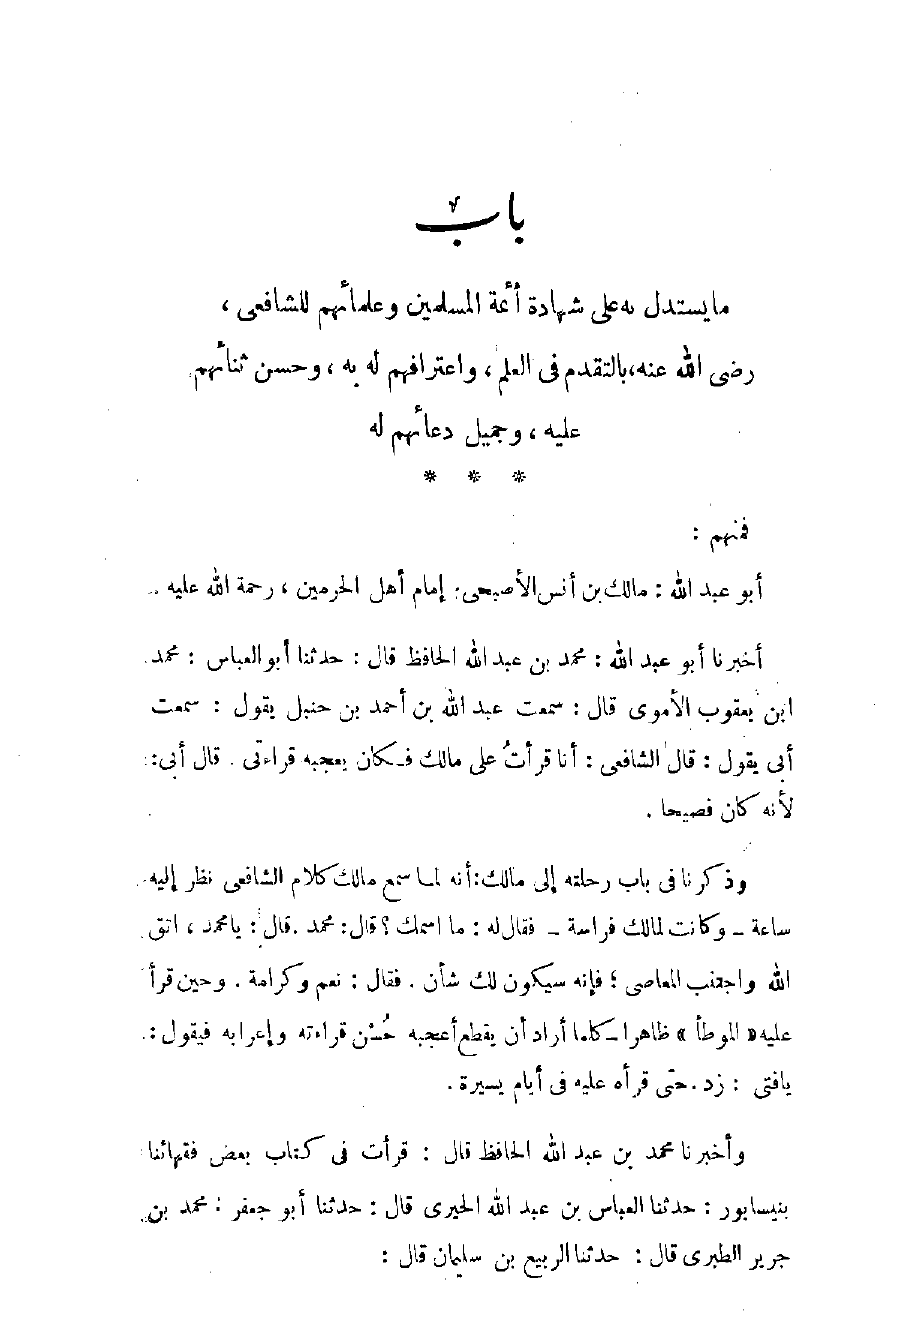 باب
ما يستدل به على شهادة أئمة المسلمين وعلمائهم للشافعى ،
رضى الله عنه، بالتقدم فى العلم ، واعترافهم له به ، وحسن ثنائهم
عليه ، وجميل دعائهم له
* * *
فمنهم :
أبو عبد الله : مالك بن أنس الأصبحى: إمام أهل الحرمين ، رحمة الله عليه .
أخبرنا أبو عبد الله : محمد بن عبد الله الحافظ قال : حدثنا أبو العباس : محمد
ابن يعقوب الأموى قال : سمعت عبد الله بن أحمد بن حنبل يقول : سمعت
أبى يقول : قال الشافعى : أنا قرأتُ على مالك فكان يعجبه قراءتى . قال أبى:
لأنه كان فصيحا .
وذكرنا فى باب رحلته إلى مالك: أنه لما سمع مالك كلام الشافعى نظر إليه
ساعة – وكانت لمالك فراسة – فقال له : ما اسمك ؟ قال: محمد . قال : يا محمد ، اتق
الله واجتنب المعاصى ؛ فإنه سيكون لك شأن . فقال : نعم وكرامة . وحين قرأ
عليه « الموطأ » ظاهرا – كلما أراد أن يقطع أعجبه حُسْن قراءته وإعرابه فيقول :
يافتى : زد . حتى قرأه عليه فى أيام يسيرة .
وأخبرنا محمد بن عبد الله الحافظ قال : قرأت فى كتاب بعض فقهائنا
بنيسابور : حدثنا العباس بن عبد الله الحيرى قال : حدثنا أبو جعفر : محمد بن
جرير الطبرى قال : حدثنا الربيع بن سليمان قال :